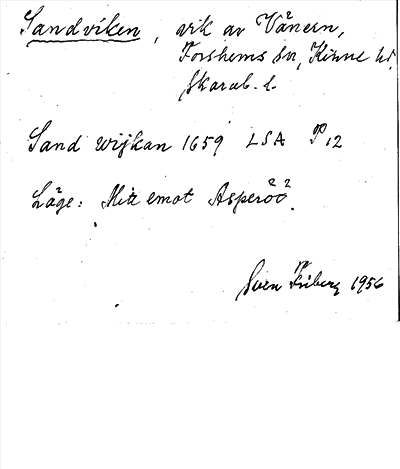 Sandviken, vik av Vänern,
Forshems sn, Kinne hd,
Skarab. l.
Sand wijkan 1659 LSA P12
Läge: Mitt emot Asperöö.
Sven Friberg 1956